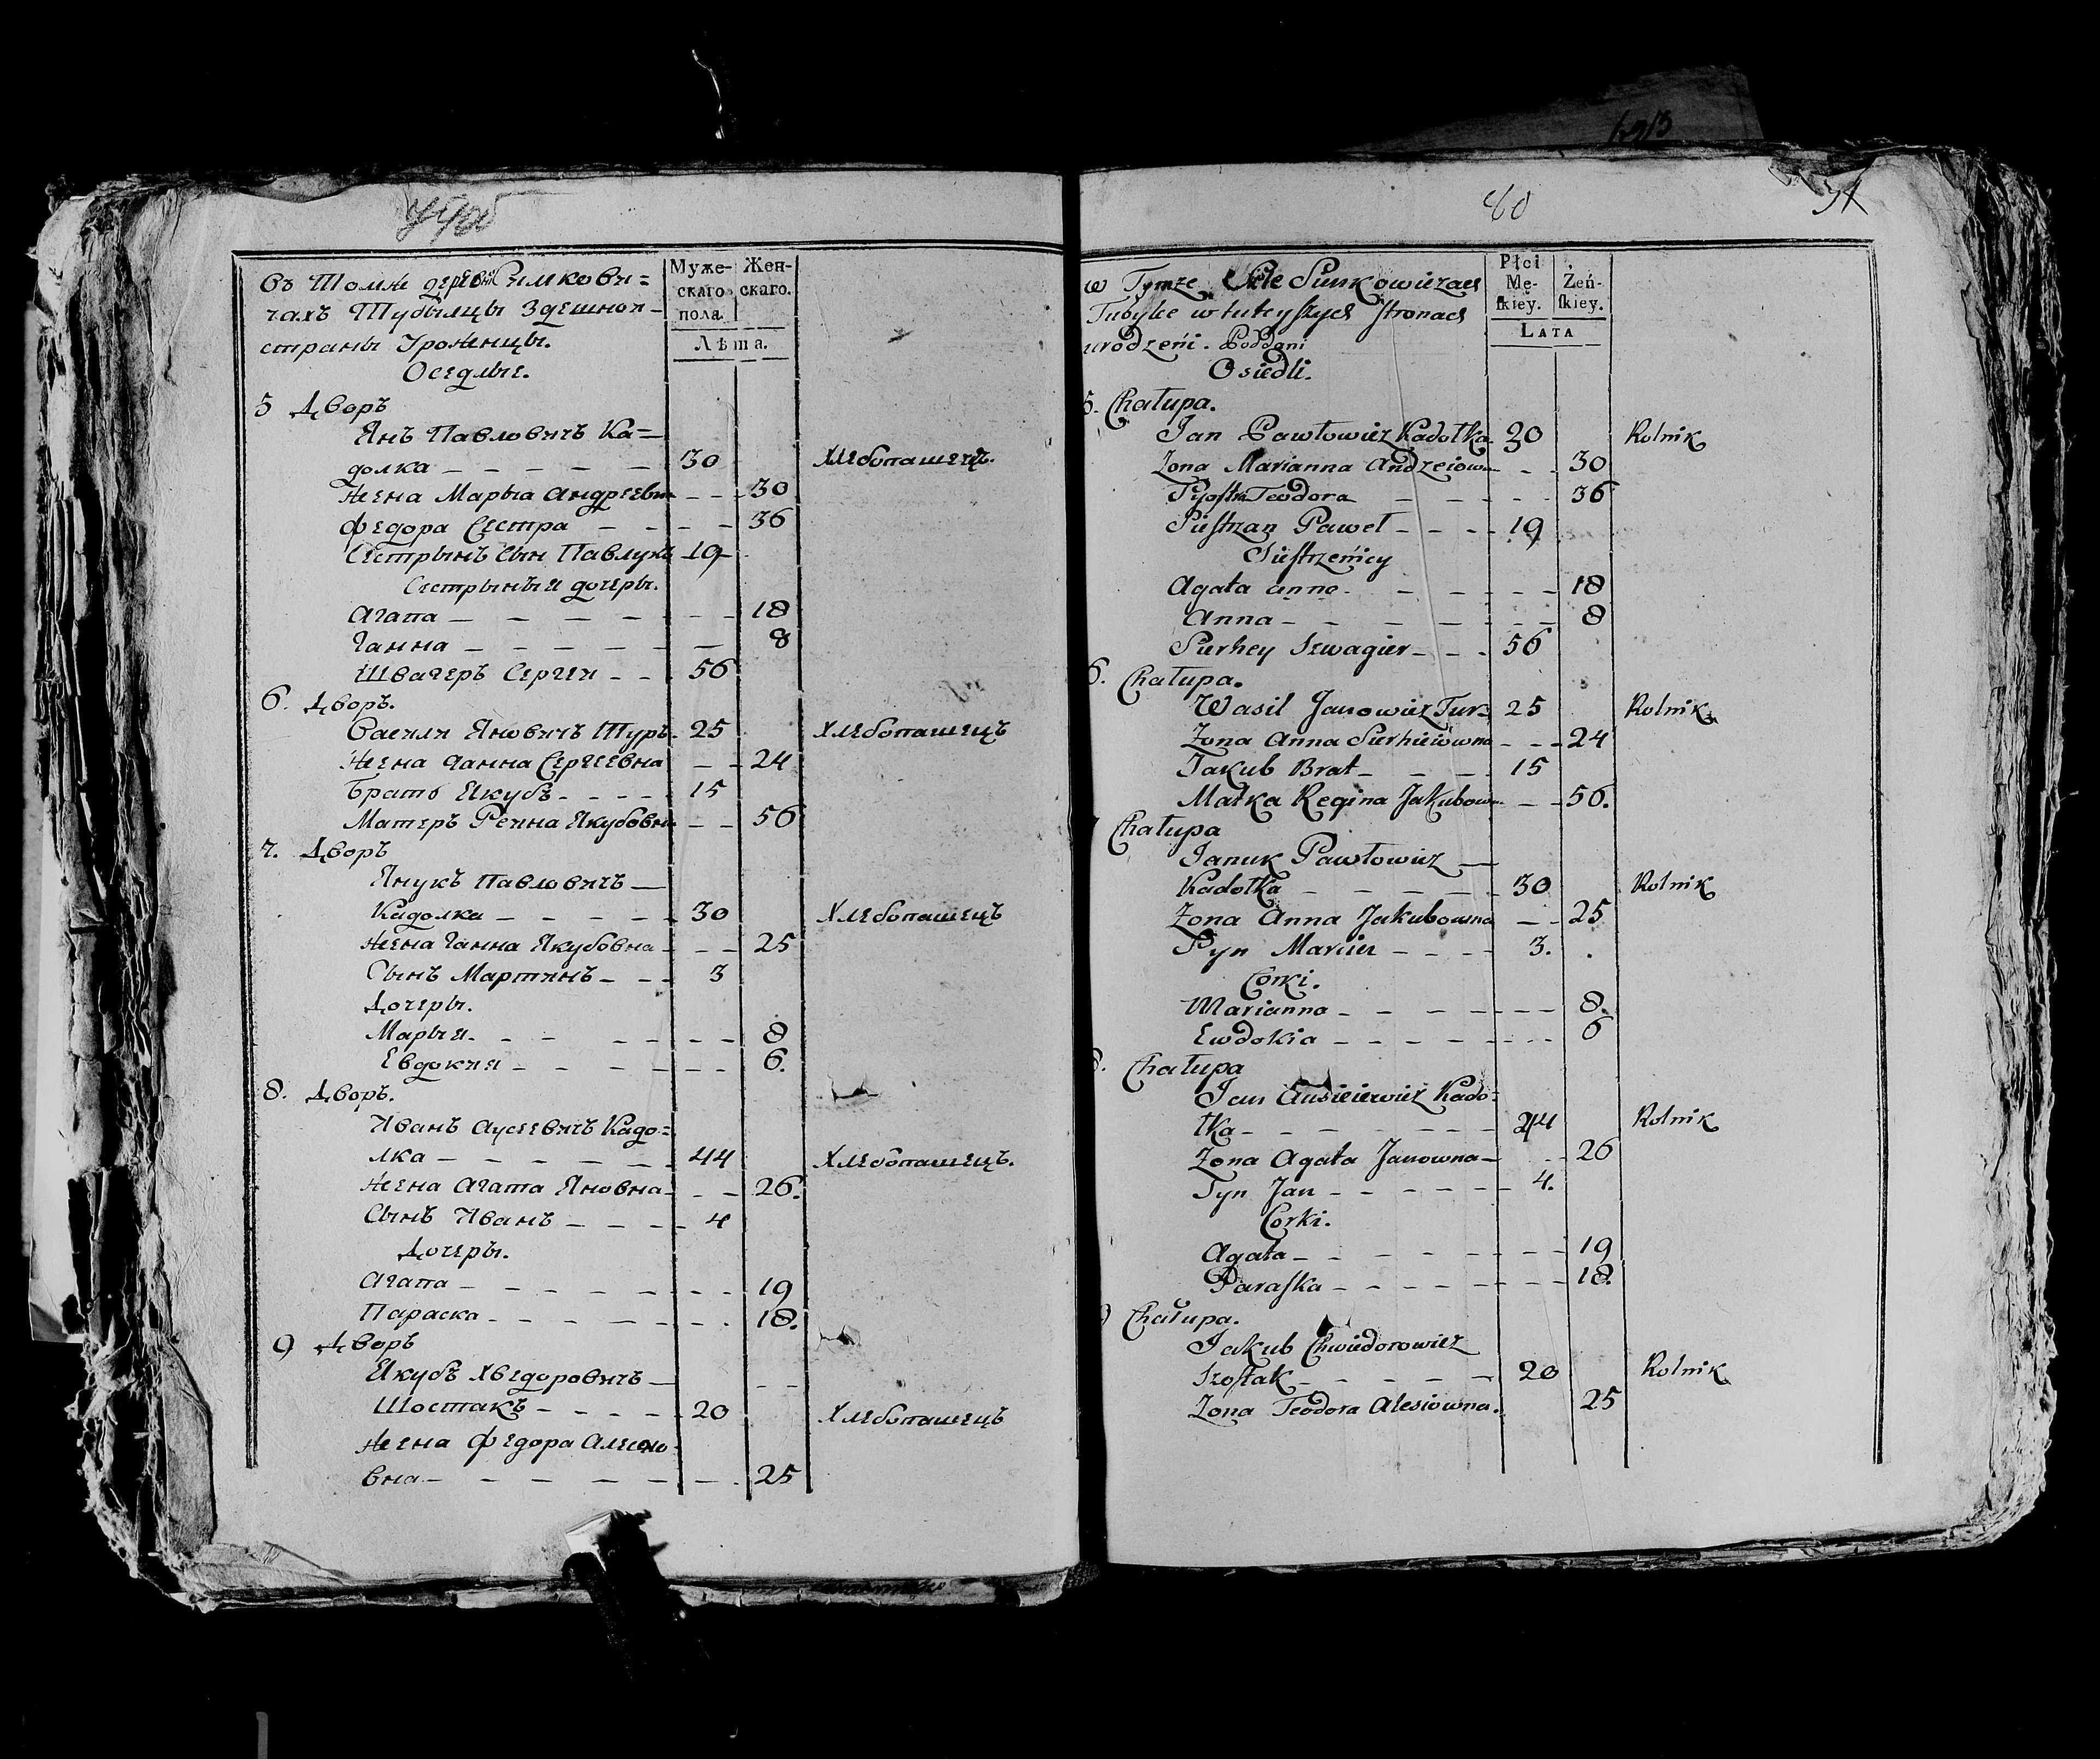 80
въ Томже деревни Симкови=
чахъ Тубылцы Здешной
страны Уроженцы.
Оседлые.
Муже-
скаго
пола.
Жен-
скаго.
Лѣта.
5 Дворъ
Янъ Павловичъ Ка=
долка — — — — — 30 Хлебопашецъ.
Жена Марыа Андреевна — — 30
Федора Сестра — — — — 36
Сестрынъ Сын Павлукъ 19
Сестрыныи дочеры.
Агапа — — — — — — — 18
Ганна — — — — — — 8
Швагеръ Сергеи — — 56
6. Дворъ.
Василь Яновичъ Туръ 25 Хлебопашецъ
Жена Ганна Сергеевна — — 24
Братъ Якубъ — — — — 15
Матеръ Реина Якубовна — — 56
7. Дворъ
Янукъ Павловичъ —
Кадолка — — — — — 30 Хлебопашецъ
Жена Ганна Якубовна — — — 25
Сынъ Мартинъ — — — 3
Дочеры.
Марыя — — — — — — — 8
Евдокия — — — — — — 6.
8. Дворъ.
Иванъ Аусеевичъ Кадо=
лка — — — — — — 44 Хлебопашецъ.
Жена Агата Яновна — — — 26.
Сынъ Иванъ — — — — 4
Дочеры.
Агапа — — — — — — — — 19
Параска — — — — — — — 18.
9 Дворъ
Якубъ Хведоровичъ —
Шостакъ — — — — — 20 Хлебопашецъ
Жена Федора Алесио-
вна — — — — — — — 25
w Tymże Siele Simkowiczach
Tubylce w tuteyszych stronach
urodzeńi. Poddani
Osiedli.
Płci
Mę-
skiey.
Żeń-
skiey.
LATA
5. Chałupa.
Jan Pawłowicz Kadołka 30 Rolnik
Zona Marianna Andzeiow— — — 30
Siostra Teodora — — — — — 36
Siestrzan Paweł — — — 19
Siestrzeńicy
Agata anna — — — — — 18
Anna — — — — — — — 8
Sierhey Szwagier — — — 56
6. Chałupa.
Wasil Janowicz Tur 25 Rolnik
Zona Anna Sierhieiowna — — — 24
Jakub Brat — — — — 15
Matka Regina Jakubow— — — 56.
Chałupa
Januk Pawłowicz —
Kadołka — — — — — — 30 Rolnik
Zona Anna Jakubowna — — 25
Syn Marcin — — — — 3.
Corki.
Marianna — — — — — — — 8.
Ewdokia — — — — — — — — 6
8. Chałupa
Jan Ausieiewicz Kado=
łka — — — — — — — 44 Rolnik
Zona Agata Janowna — — — 26
Syn Jan — — — — — — 4.
Corki.
Agata — — — — — — — — 19
Paraska — — — — — — — — 18.
9 Chałupa.
Jakub Chwiedorowicz
Szostak — — — — — — 20 Rolnik
Zona Teodora Alesiowna. 25